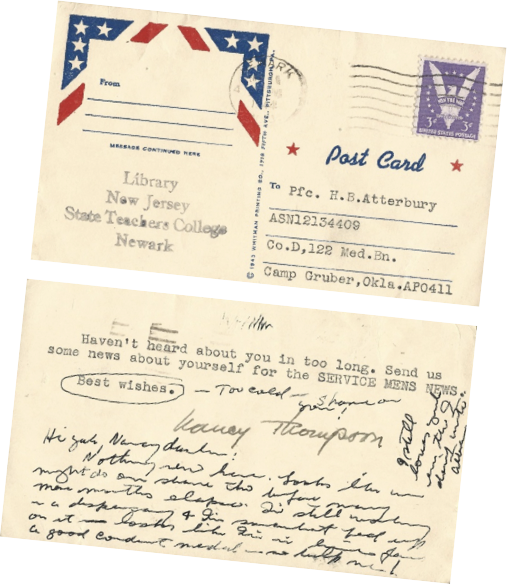 From
MESSAGE CONTINUED HERE
Library
New Jersey
State Teachers College
Newark
© 1943 WHITMAN PRINTING CO., FIFTH AVE., PITTSBURGH, PA.
3¢ 3¢
UNITED STATES POSTAGE
Post Card
To Pfc. H.B.Atterbury
ASN12134409
Co.D,122 Med.Bn.
Camp Gruber,Okla.APO411
Haven't heard about you in too long. Send us
some news about yourself for the SERVICE MENS NEWS.
Best wishes. — Too cold — Shame on
you!
Nancy Thompson
Hi yah, Nancy darlin!
Nothing new here. Looks like we
might do our share the before many
more months elapse. I'm still working
in a dispensary & I'm somewhat fed up
on it — looks like I'm in line for
a good conduct medal — so help me!
I still